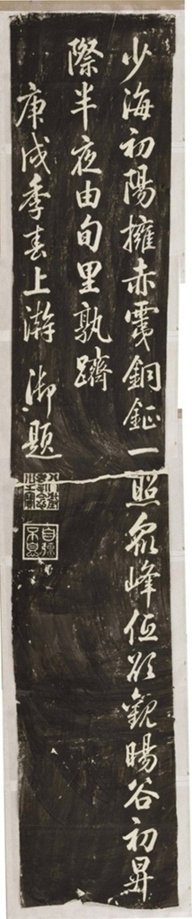 少海初陽擁赤霓銅鉦一照衆峰低欲觀暘谷初昇
際半夜由旬里孰躋
庚戌季春上澣御題
八徵耄念之寶
自彊不息